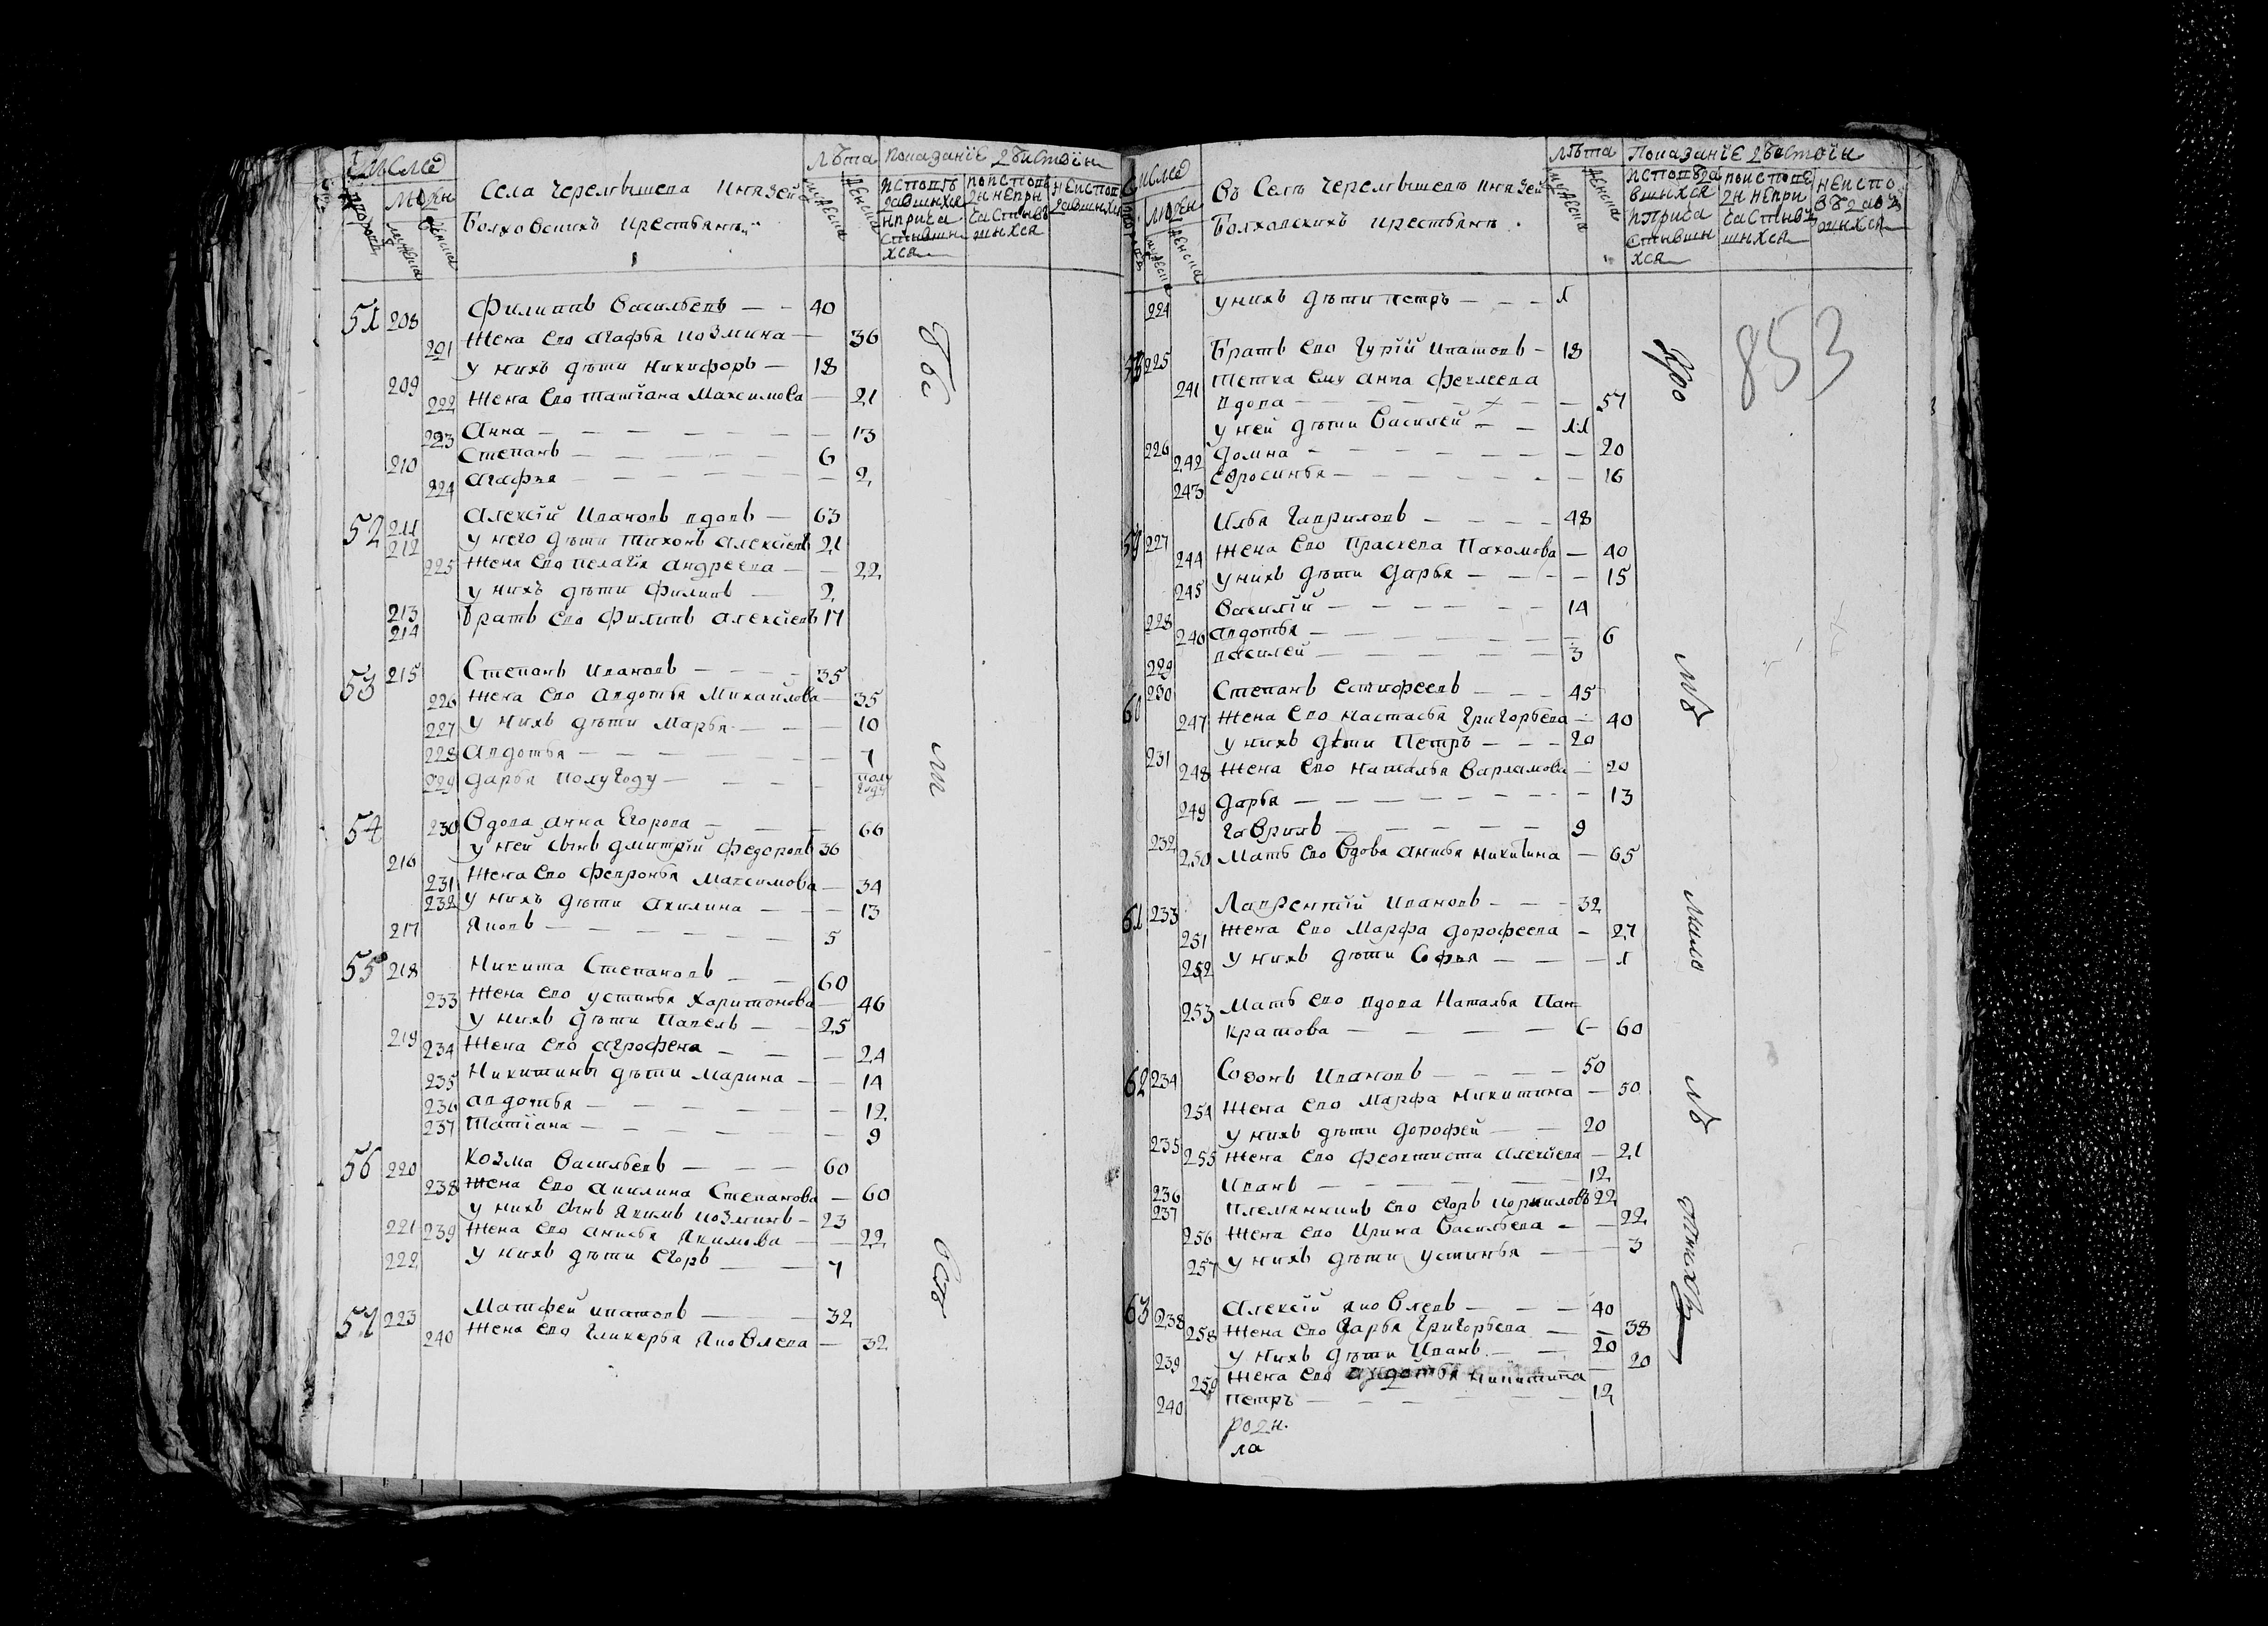 Число
Лѣта
Показанїе дѣйстві
Людей
Села Черемышева Князей
Болховскихъ крестьянъ
51 208 Филиппъ Васильевъ — — 40
221 Жена ево Агафья Козмина — 36
У нихъ дѣти Никифоръ — 18
209
222 Жена ево Татїана Максимова — 21
223 Анна — — — 13
210 Степанъ — — — 6
224 Агафья — — — 2
52 211 Алексїй Ивановъ вдовъ — 63
212 У него дѣти Тихонъ Алексїевъ 21
225 Жена ево Пелагїя Андреева — — 22
У нихъ дѣти Филипъ — 2
213
214 Братъ ево Филипъ Алексїевъ 17
53 215 Степанъ Ивановъ — — — 35
226 Жена ево Авдотья Михайлова — 35
227 У нихъ дѣти Марья — — — 10
228 Авдотья — — — 7
229 Дарья полугоду — — — полу году
54 230 Вдова Анна Егорова — — — 66
У ней сынъ Дмитрїй Федоровъ 36
216
231 Жена ево Февронья Максимова — 34
232 У нихъ дѣти Акилина — — — 13
217 Яковъ — — — 5
55 218 Никита Степановъ — — 60
233 Жена ево Устинья Харитонова — 46
У нихъ дѣти Павелъ — — 25
219
234 Жена ево Агрофена — — — 24
235 Никитины дѣти Марина — — 14
236 Авдотья — — — 12
237 Татїана — — — 9
56 220 Козма Васильевъ — — — 60
238 Жена ево Акилина Степанова — 60
У нихъ сынъ Якимъ Козминъ — 23
221 239 Жена ево Анисья Якимова — — 22
222 У нихъ дѣти Егоръ — — 7
57 223 Матфей Ипатовъ — — 32
240 Жена ево Гликерья Яковлева — 32
Число
Лѣта
Показанїе дѣйстві
Людей
Въ Селѣ Черемышевѣ Князей
Болховскихъ крестьянъ
224 У нихъ дѣти Петръ — — — 1
58 225 Братъ ево Гурїй Ипатовъ — 18
241 Тетка ему Анна Феклеева
вдова — — — 57
У ней дѣти Василей — — 11
226
242 Домна — — — 20
243 Ефросинья — — — 16
59 227 Илья Гавриловъ — — — — 48
244 Жена ево Праскева Пахомова — 40
245 У нихъ дѣти Дарья — — — — 15
228 Василїй — — — 14
246 Авдотья — — — 6
229 Василей — — — 3
60 230 Степанъ Естифеевъ — — — 45
247 Жена ево Настасья Григорьева — 40
231 У нихъ дѣти Петръ — — — 20
248 Жена ево Наталья Варламова — 20
249 Дарья — — — 13
232 Гаврилъ — — — 9
250 Мать ево вдова Анисья Никитина — 65
61 233 Лаврентїй Ивановъ — — — 32
251 Жена ево Марфа Дорофеева — 27
252 У нихъ дѣти Софья — — — 1
253 Мать ево вдова Наталья Пан
кратова — — — 60
62 234 Созонъ Ивановъ — — — — 50
254 Жена ево Марфа Никитина — 50
235 У нихъ дѣти Дорофей — — 20
255 Жена ево Феоктиста Алексїева — 21
236 Иванъ — — — 12
237 Племянникъ ево Егоръ Корниловъ 22
256 Жена ево Ирина Васильева — — 22
257 У нихъ дѣти Устинья — — — 3
63 238 Алексїй Яковлевъ — — — 40
258 Жена ево Дарья Григорьева — — 38
239 У нихъ дѣти Иванъ — — 20
259 Жена ево Авдотья Никитина — 20
240 Петръ — — — 12
853